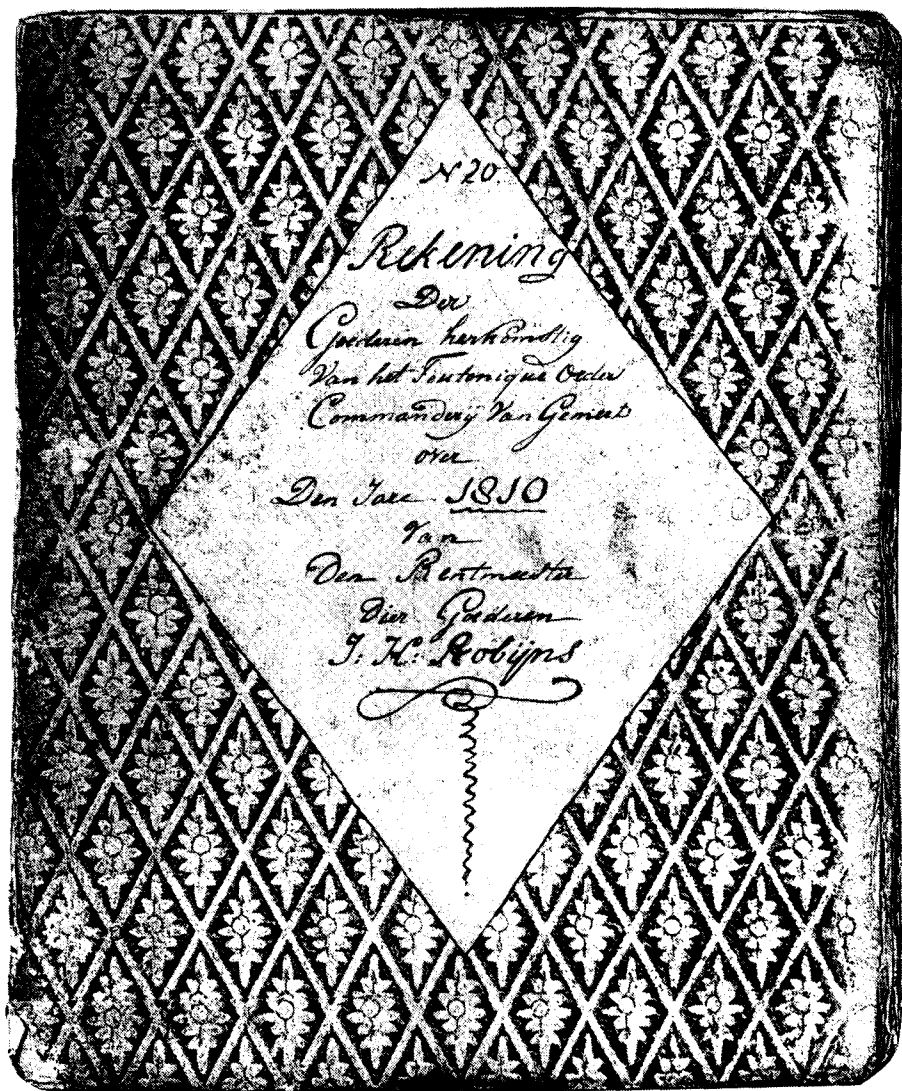 N 20.
Rekening
Der
Goederen herkomstig
Van het Teutonique Order
Commanderij Van Gemert
over
Den Jare 1810
Van
Den Rentmeester
Dier Goederen
J: H: Robijns